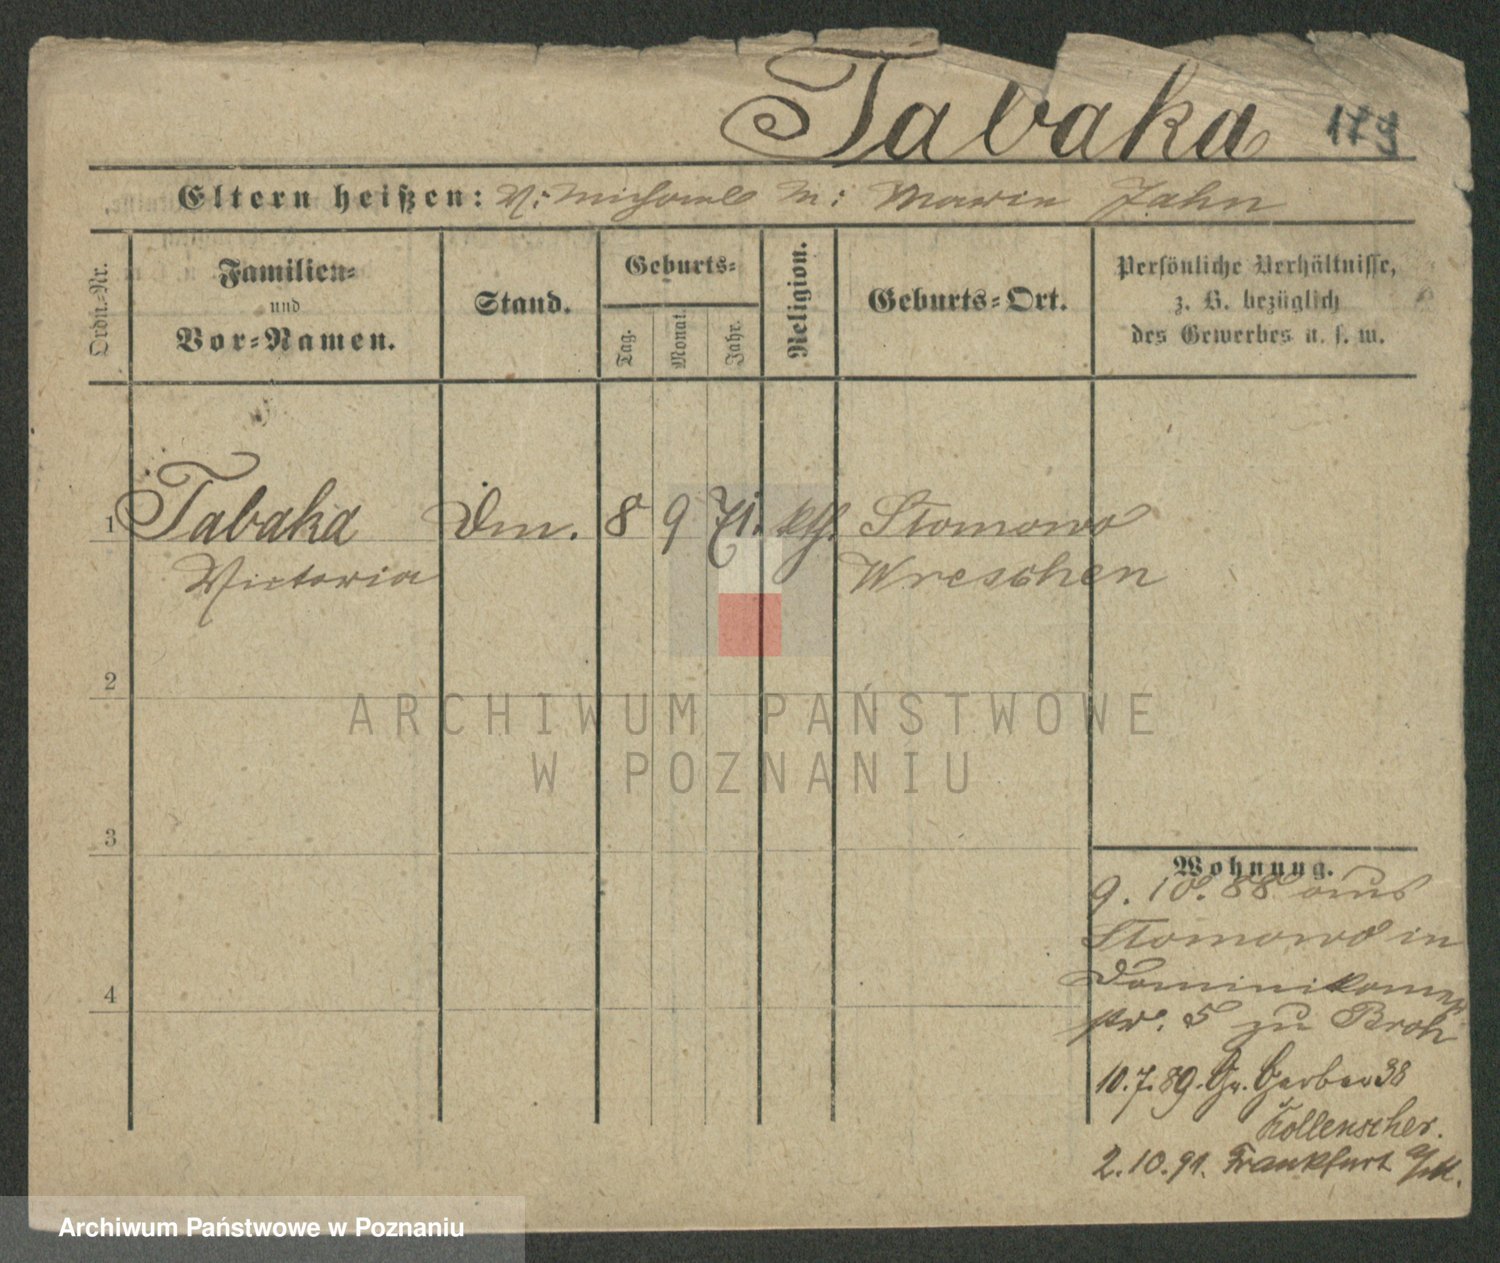 Tabaka 179
Eltern heißen: V: Michael M: Marie Jahn
Ordn.-Nr.
Familien-
und
Vor-Namen.
Stand.
Geburts-
Tag.
Monat.
Jahr.
Religion.
Geburts-Ort.
Persönliche Verhältnisse,
z. B. bezüglich
des Gewerbes u. s. w.
1 Tabaka Dm. 8 9 71. kth. Slomowo
Victoria Wreschen
2
3
4
Wohnung.
9. 10. 88 aus
Slomowo in
Dominikaner
str. 5 zu Broh
10.7.89. Gr. Gerber 38
Kollenscher.
2.10.91. Frankfurt a/M.
ARCHIWUM PAŃSTWOWE
W POZNANIU
Archiwum Państwowe w Poznaniu